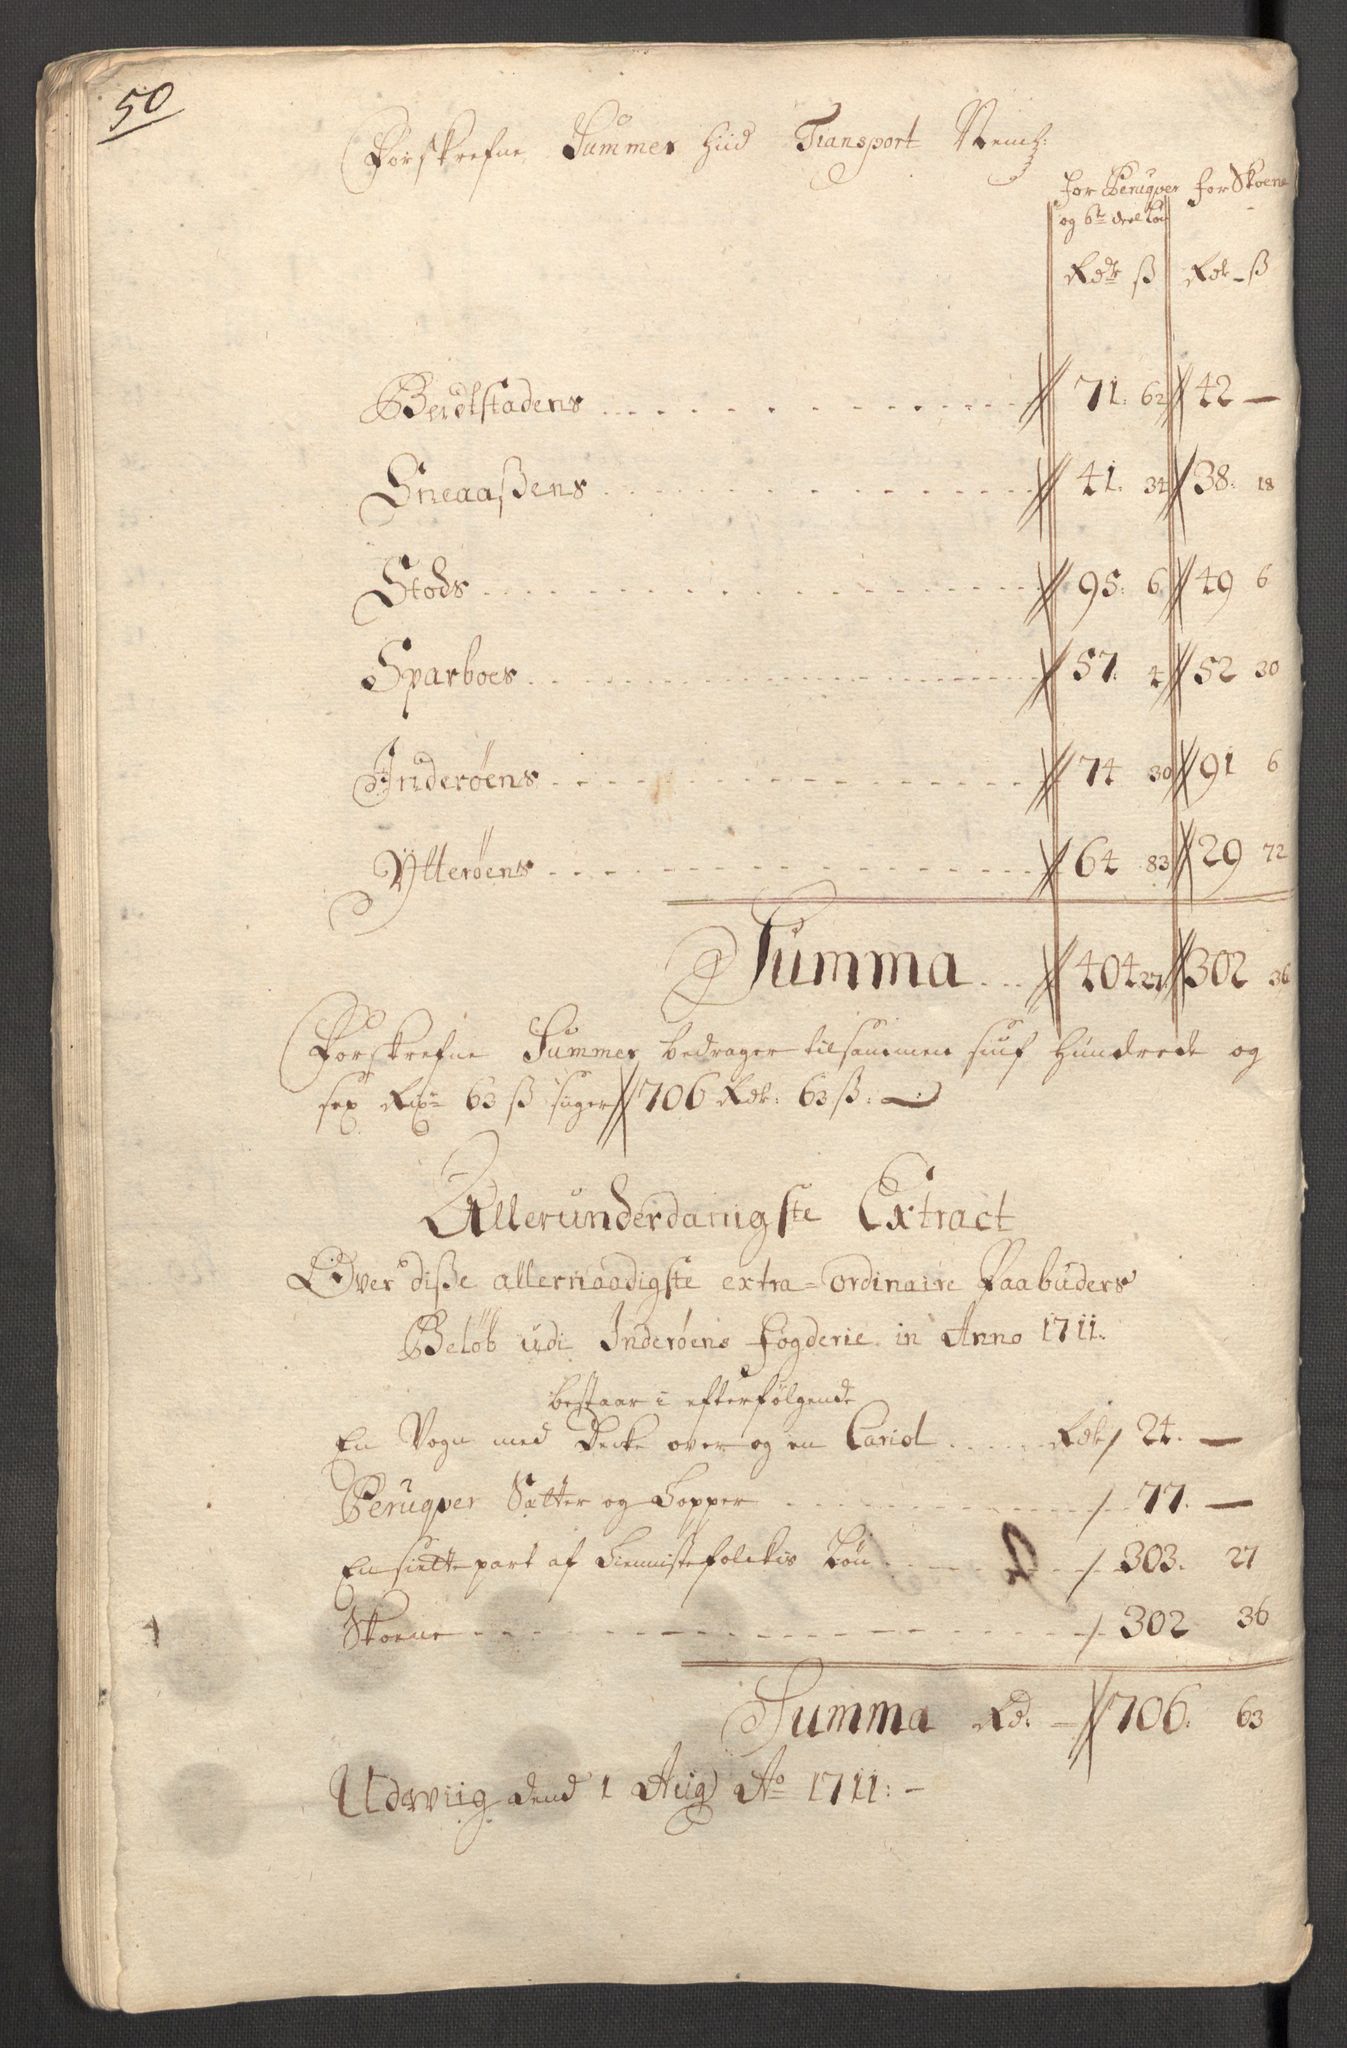 50
Forskrefne Summer hiid Transport Neml:
for Peruqver for Skoene
og 6te deel Løn
Rdr ß Rdr ß
Berdlstadens 71: 62 42 —
Sneaaßens 41: 34 38: 18
Stods 95: 6 49 6
Sparboes 57. 4 52 30
Inderøens 74 30 91 6
Ytterøens 64 83 29 72
Summa 404 27 302 36
Forskrefne Summer bedrager tilsammen siuf hundrede og
sex Rixdr 63 ß siger 706 Rdr: 63 ß:
Allerunderdanigste Extract
Over diße allernaadigste extra=ordinaire Paabuders
Beløb udi Inderøens fogderie in Anno 1711.
bestaar i efterfølgende
En Vogn med Decke over og en Cariol Rdr 24. —
Peruqver Sætter og Topper 77. —
En siette part af Tiennistefolckis Løn 303. 27
Skoene 302 36
Summa Rd. 706. 63
Udwiig dend 1 Aug Ao 1711: —